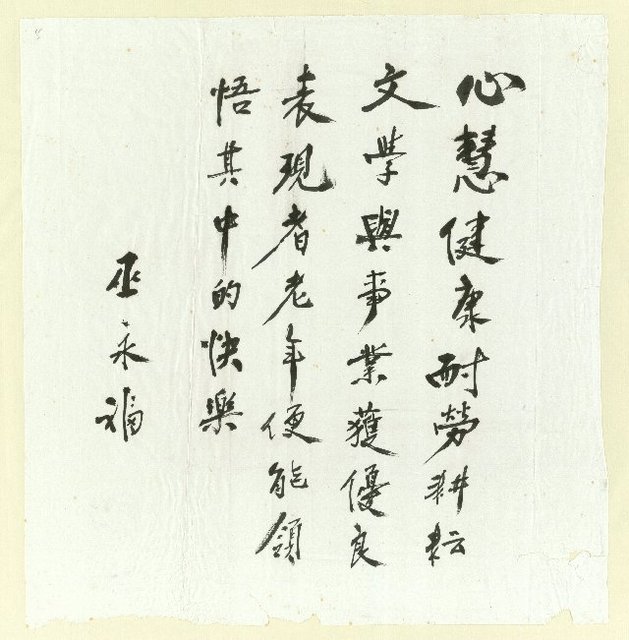 心慧健康耐勞耕耘
文學與事業獲優良
表現者老年便能領
悟其中的快樂
巫永福